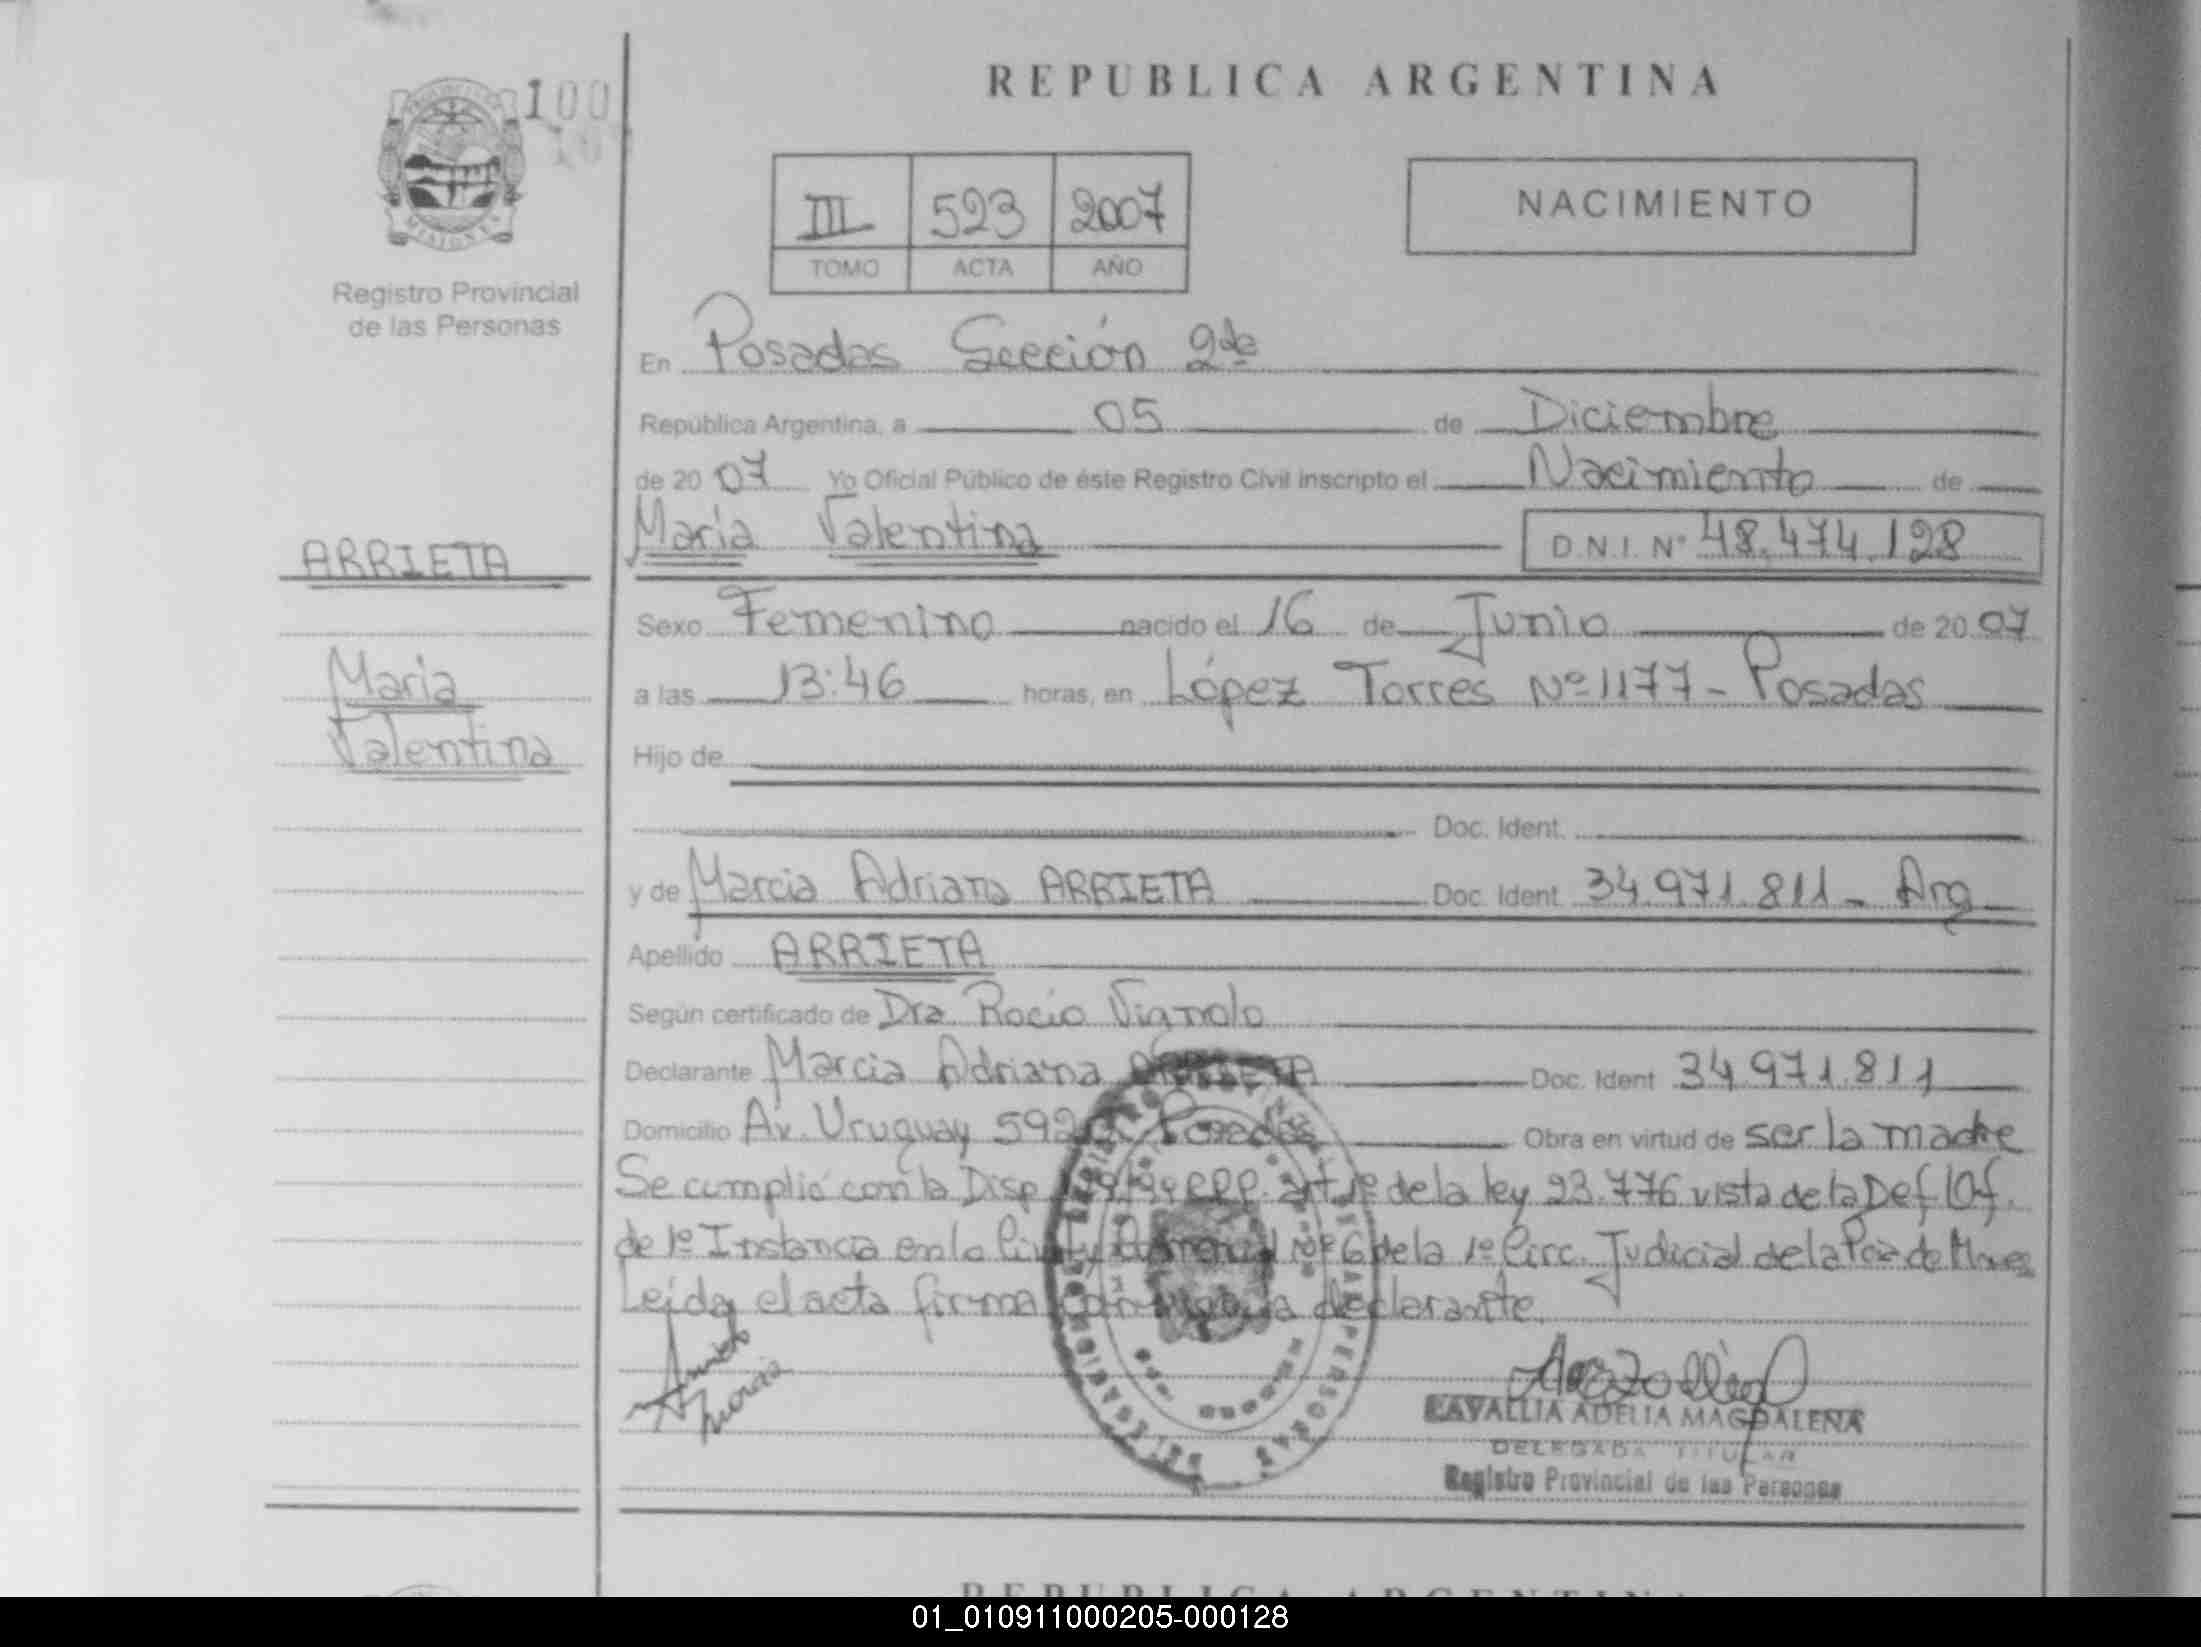 REPUBLICA ARGENTINA
100
PROVINCIA DE
MISIONES
III 523 2007
TOMO ACTA AÑO
NACIMIENTO
Registro Provincial
de las Personas
En Posadas Sección 2da
República Argentina, a 05 de Diciembre
de 2007 Yo Oficial Público de éste Registro Civil inscripto el Nacimiento de
María Valentina D.N.I. Nº 48.474.128
ARRIETA
Sexo Femenino nacido el 16 de Junio de 2007
María
a las 13:46 horas, en López Torres Nº 1177 - Posadas
Valentina
Hijo de
Doc. Ident.
y de Marcia Adriana ARRIETA Doc. Ident. 34.971.811 - Arg
Apellido ARRIETA
Según certificado de Dra. Rocío Vignolo
Declarante Marcia Adriana ARRIETA Doc. Ident 34.971.811
Domicilio Av. Uruguay 592 Posadas Obra en virtud de ser la madre
Se cumplió con la Disp de la ley 23.776 vista de la Def Of.
de 1º Instancia en lo Civil Nº 6 de la 1º Circ. Judicial de la Pcia de Mnes
Leída el acta firma declarante.
Marcia
LAVALLIA ADELIA MAGDALENA
DELEGADA TITULAR
Registro Provincial de las Personas
REPUBLICA ARGENTINA
01_010911000205-000128